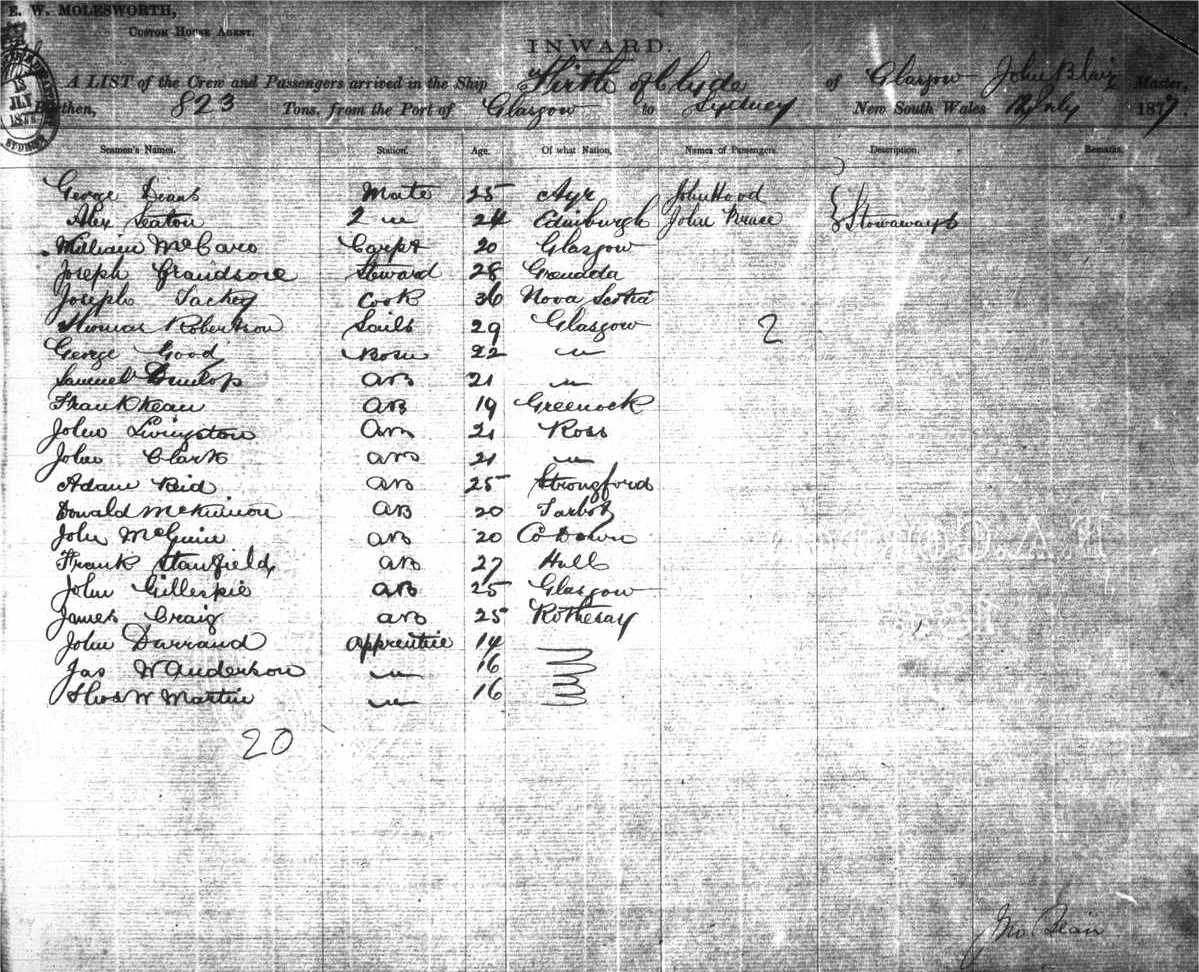 E. W. MOLESWORTH,
CUSTOM HOUSE AGENT.
INWARD.
A LIST of the Crew and Passengers arrived in the Ship "Firth of Clyde of Glasgow John Blair Master,
Burthen, 823 Tons, from the Port of Glasgow to Sydney New South Wales July 1877.
Seamen's Names. Station. Age. Of what Nation, Names of Passengers. Description. Remarks.
George Deans Mate 25 Ayr John Hood
Alex Seaton 2 " 24 Edinburgh John Bruce } Stowaways
William Carpt 20 Glasgow
Joseph Steward 28 Grenada
Joseph Cook 36 Nova Scotia
Thomas Robertson Sails 29 Glasgow 2
George Good Bosn 22 "
Samuel Dunlop AB 21 "
Frank Kean AB 19 Greenock
John Livingston AB 21 Ross
John Clark AB 21 "
Adam Reid AB 25 Strongford
Donald McKinnon AB 20 Tarbot
John McGuire AB 20 Co Down
Frank Stanfield AB 27 Hull
John Gillespie AB 25 Glasgow
James Craig AB 25 Rothesay
John Durrand Apprentice 14
Jas W Anderson " 16
Thos W Martin " 16
20
Jno Blair